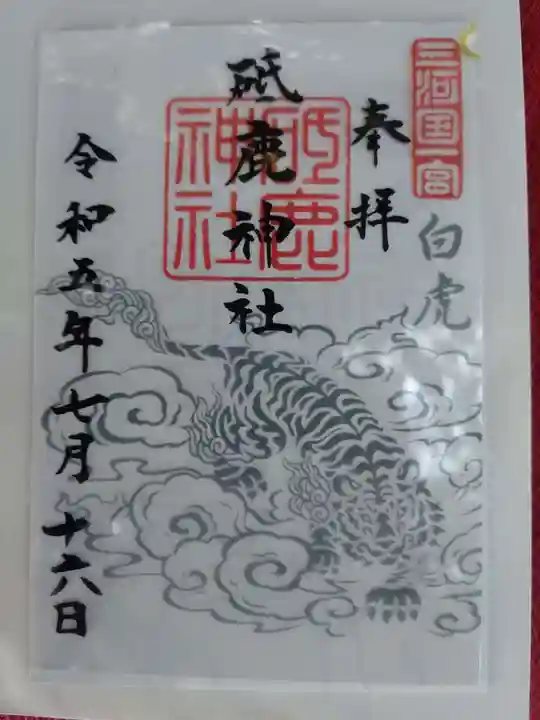 三河国一宮
白虎
奉拝
砥鹿神社
砥鹿神社
令和五年七月十六日